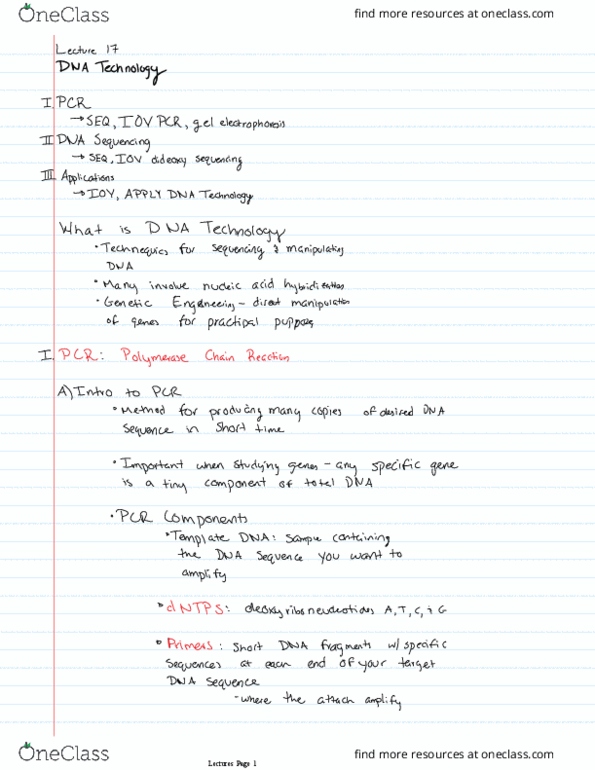 OneClass
find more resources at oneclass.com
Lecture 17
DNA Technology
I. PCR
→ SEQ, IOV PCR, gel electrophoresis
II DNA Sequencing
→ SEQ, IOV dideoxy sequencing
III Applications
→ IOV, APPLY DNA Technology
What is DNA Technology
• Technequies for sequencing & manipulating
DNA
• Many involve nucleic acid hybidization
• Genetic Engineering - direct manipulation
of genes for practical
I. PCR: Polymerase Chain Reaction
A) Intro to PCR
• Method for producing many copies of desired DNA
sequence in short time
• Important when studying genes - any specific gene
is a tiny component of total DNA
• PCR Components
• Template DNA: Sample containing
the DNA sequence you want to
amplify
• dNTPS: A, T, C, & G
• Primers: Short DNA fragments w/ specific
sequences at each end of your target
DNA sequence
- where the attach amplify
OneClass
find more resources at oneclass.com
Lectures Page 1